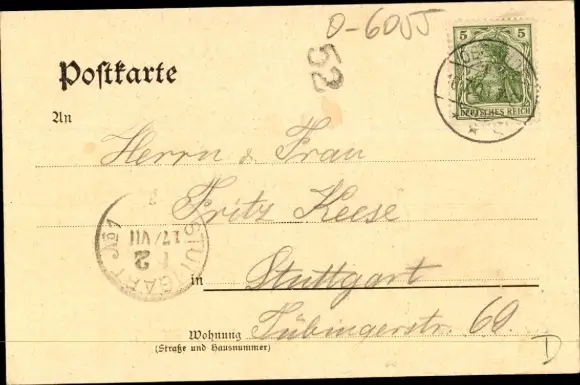 O-6055
52
5 5
DEUTSCHES REICH
Postkarte
An
Herrn & Frau
Fritz Keese
STUTTGART
17/VII
in Stuttgart
Tübingerstr. 69.
Wohnung
(Straße und Hausnummer)
D